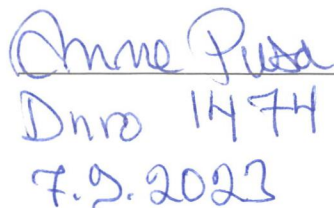 Anne Pusa
Dnro 1474
7.9.2023